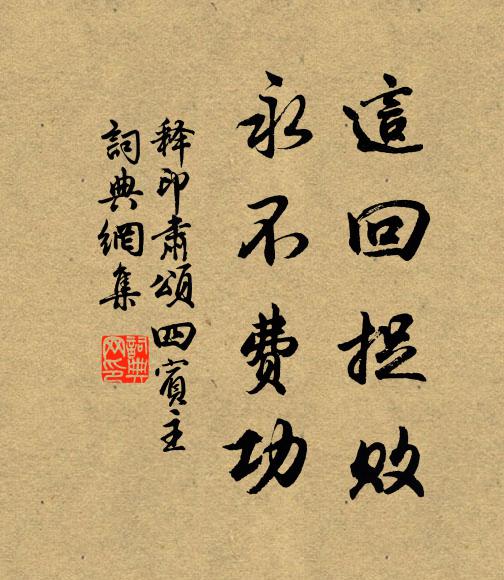 這回捉敗
永不費功
釋印肅頌四賓主
詞典網集
詞典網印